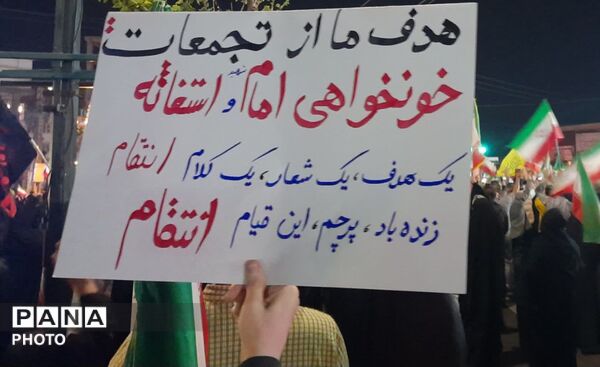 هدف ما از تجمعات
خونخواهی امام شهید و استغاثه
یک هدف، یک شعار، یک کلام انتقام
زنده باد، پرچم، این قیام انتقام
PANA
PHOTO